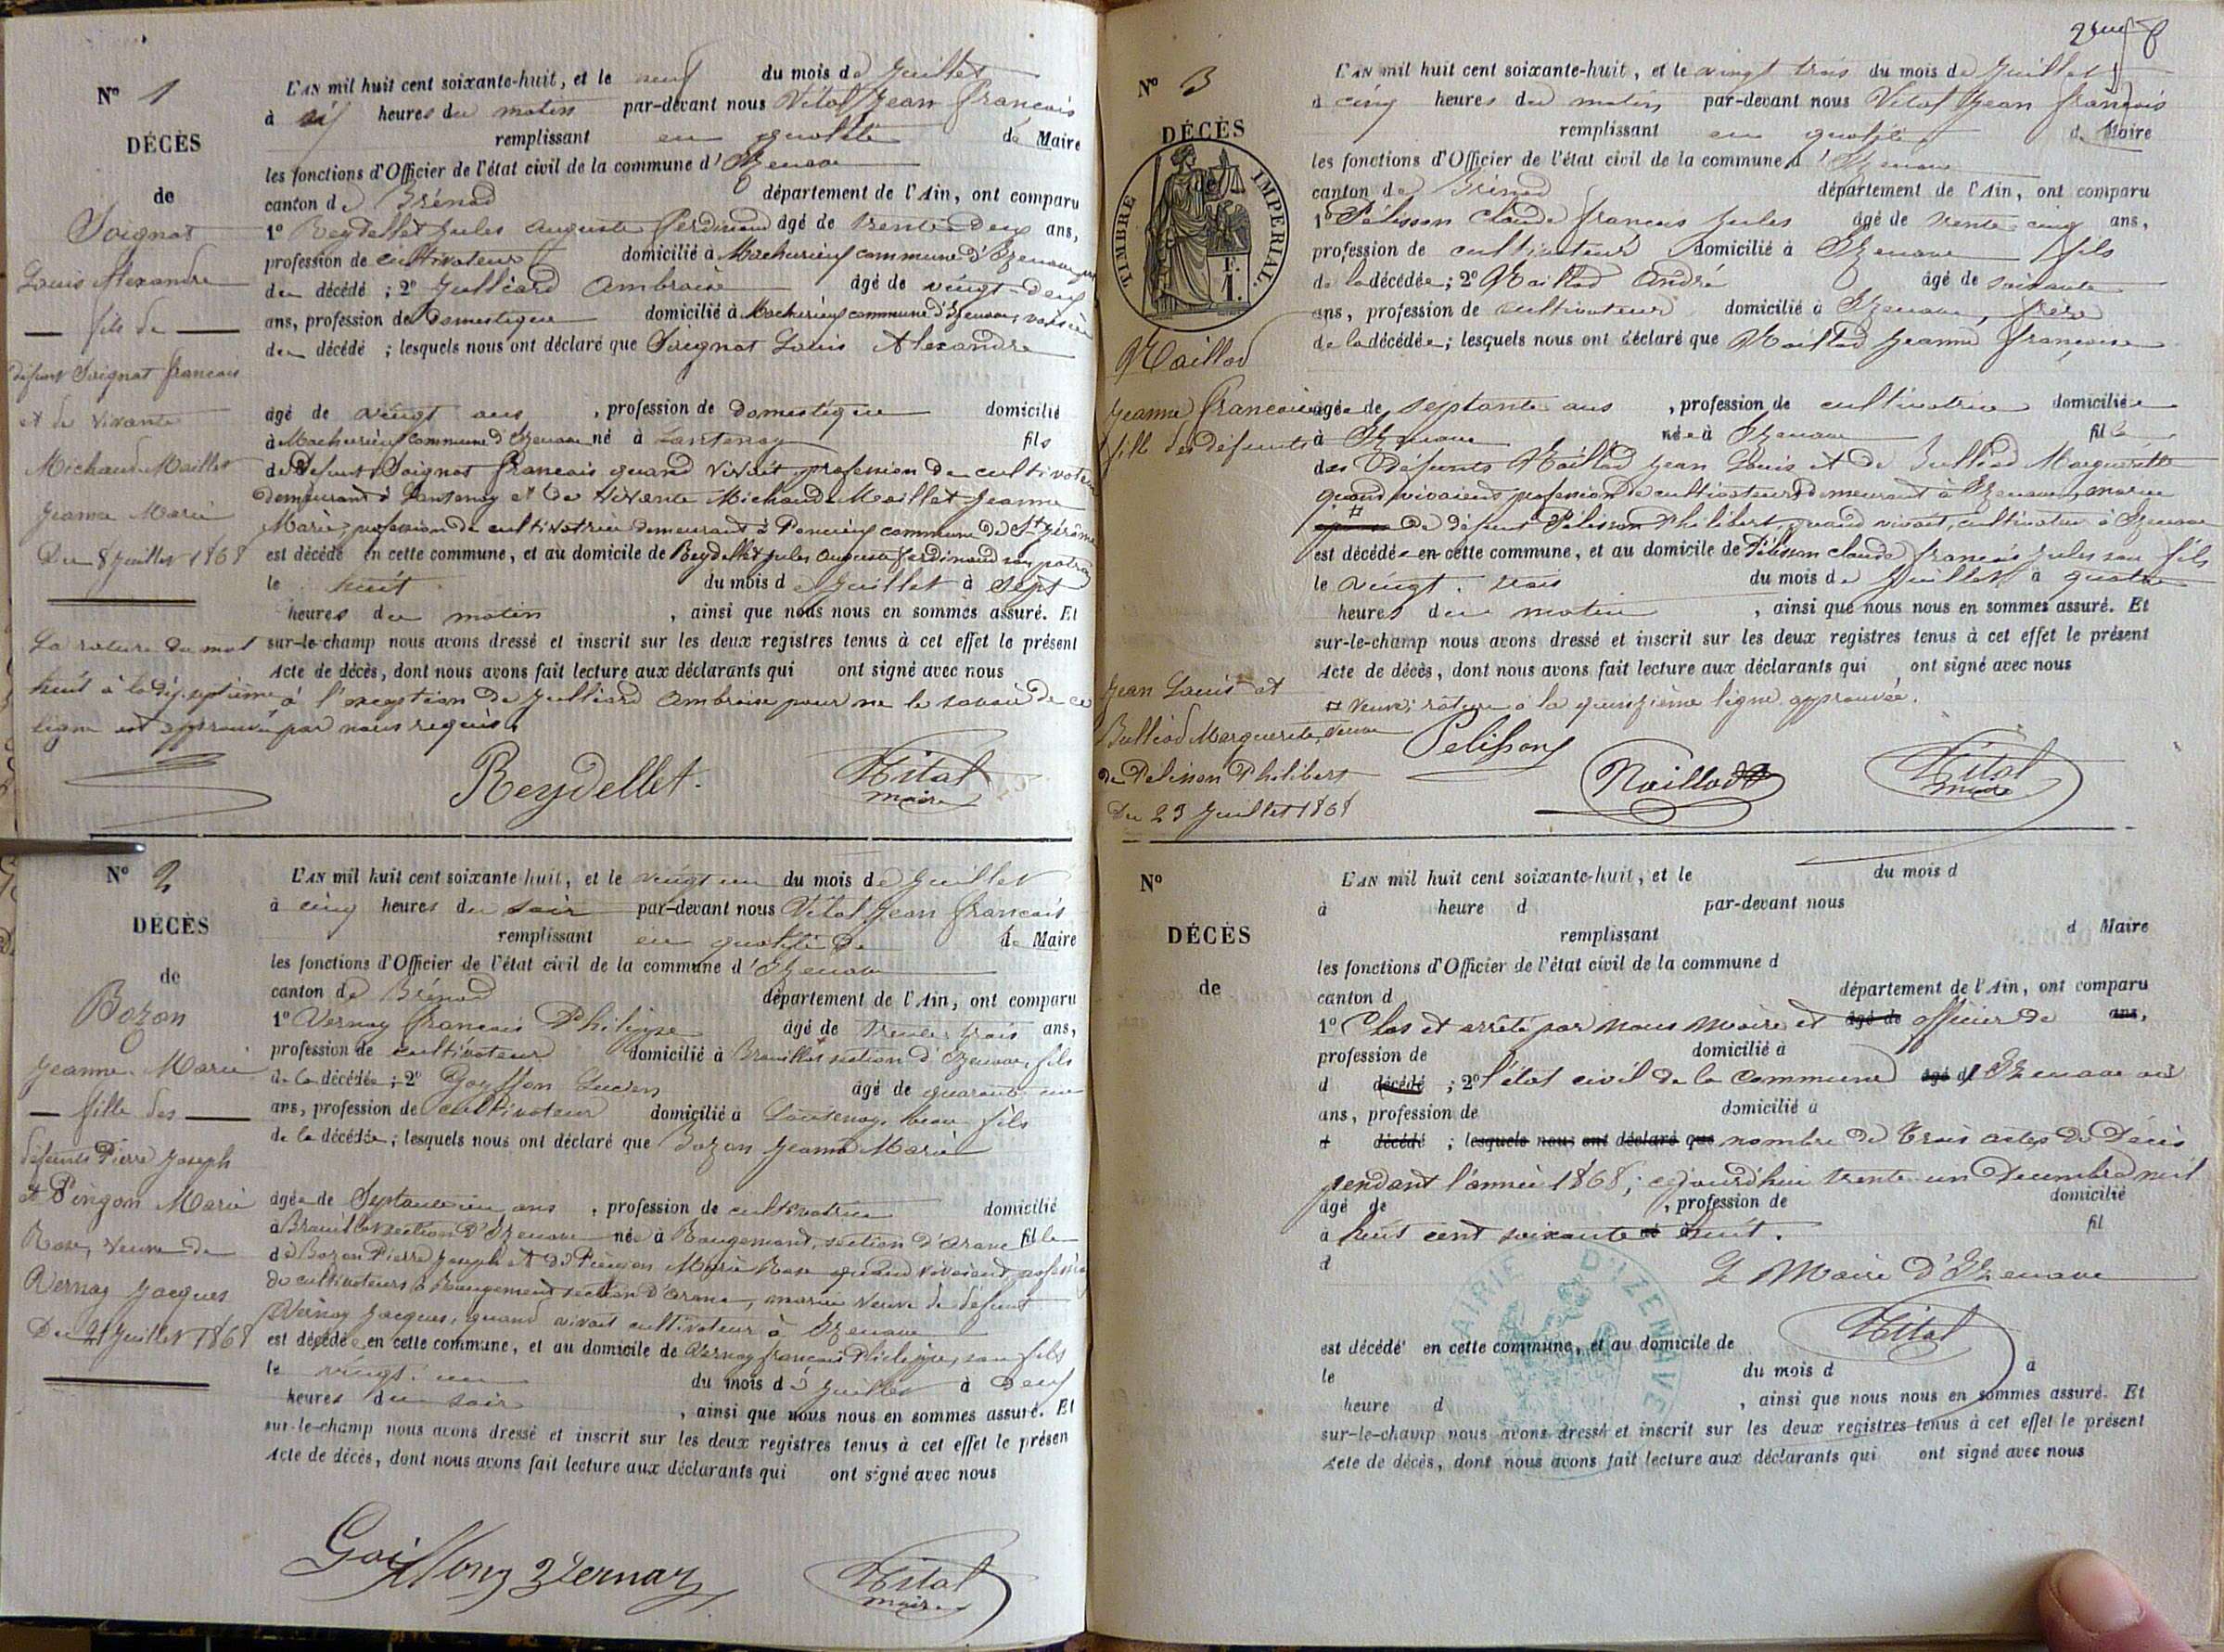 N° 1
DÉCÈS
de
Soignat
Louis Alexandre
fils de
défunt Soignat francois
et de vivante
Michaud Maillet
Jeanne Marie
Du 8 juillet 1868
La rature du mot
huit à la dix septième
ligne est approuvé
L'AN mil huit cent soixante-huit, et le neuf du mois de Juillet
à six heures du matin par-devant nous Vital Jean francois
remplissant en qualité de Maire
les fonctions d'Officier de l'état civil de la commune d'Izenave
canton de Brénod département de l'Ain, ont comparu
1° Reydellet Jules Auguste Ferdinand âgé de trente-deux ans,
profession de cultivateur domicilié à Machurieux commune d'Izenave
du décédé ; 2° Julliard Ambroise âgé de vingt-deux
ans, profession de Domestique domicilié à Machurieux commune d'Izenave, voisin
du décédé ; lesquels nous ont déclaré que Soignat Louis Alexandre
âgé de vingt ans , profession de domestique domicilié
à Machurieux commune d'Izenave né à Lantenay fils
de défunt Soignat francois quand vivait profession de cultivateur
demeurant à Lantenay et de vivante Michaud Maillet Jeanne
Marie, profession de cultivatrice demeurant à Poncieux commune de St Jérôme
est décédé en cette commune, et au domicile de Reydellet Jules Auguste Ferdinand son patron
le huit du mois de Juillet à sept
heures du matin , ainsi que nous nous en sommes assuré. Et
sur-le-champ nous avons dressé et inscrit sur les deux registres tenus à cet effet le présent
Acte de décès, dont nous avons fait lecture aux déclarants qui ont signé avec nous
à l'exception de Julliard Ambroise pour ne le savoir de ce
par nous requis.
Reydellet. Vital
maire
N° 2
DÉCÈS
de
Bozon
Jeanne Marie
fille des
défunts Pierre Joseph
et Pingon Marie
Rose, veuve de
Vernay Jacques
Du 21 juillet 1868
L'AN mil huit cent soixante huit, et le vingt un du mois de Juillet
à cinq heures du soir par-devant nous Vital Jean francois
remplissant en qualité de de Maire
les fonctions d'Officier de l'état civil de la commune d'Izenave
canton de Brénod département de l'Ain, ont comparu
1° Vernay francois Philippe âgé de trente trois ans,
profession de cultivateur domicilié à Brouillat section d'Izenave, fils
de la décédée ; 2° Goyffon Lucien âgé de quarante un
ans, profession de cultivateur domicilié à Lantenay, beau fils
de la décédée ; lesquels nous ont déclaré que Bozon Jeanne Marie
âgée de Septante un ans , profession de cultivatrice domicilié
à Brouillat section d'Izenave née à Rougemont, section d'Aranc fille
de Bozon Pierre Joseph et de Marie Rose quand vivaient profession
de cultivateurs à Rougemont section d'Aranc, mariée veuve de défunt
Vernay Jacques, quand vivait cultivateur à Izenave
est décédée en cette commune, et au domicile de Vernay francois Philippe, son fils
le vingt un du mois de Juillet à deux
heures du soir , ainsi que nous nous en sommes assuré. Et
sur-le-champ nous avons dressé et inscrit sur les deux registres tenus à cet effet le présen
Acte de décès, dont nous avons fait lecture aux déclarants qui ont signé avec nous
Goiffon Vernay Vital
maire
N° 3
DÉCÈS
de
TIMBRE IMPERIAL
F.
1.
Maillod
Jeanne francoise
fille des défunts
Jean Louis et
Bulliod Marguerite, veuve
de Pelisson Philibert
Du 23 Juillet 1868
L'AN mil huit cent soixante-huit, et le vingt trois du mois de Juillet
à cinq heures du matin par-devant nous Vital Jean francois
remplissant en qualité de Maire
les fonctions d'Officier de l'état civil de la commune d'Izenave
canton de Brénod département de l'Ain, ont comparu
1° Pélisson Claude francois Jules âgé de trente cinq ans,
profession de cultivateur domicilié à Izenave fils
de la décédée ; 2° Maillod André âgé de soixante
ans, profession de cultivateur domicilié à Izenave, frère
de la décédée ; lesquels nous ont déclaré que Maillod Jeanne francoise
âgée de septante ans , profession de cultivatrice domiciliée
à Izenave née à Izenave fille
des défunts Maillod Jean Louis et de Bulliod Marguerite
quand vivaient profession de cultivateurs demeurant à Izenave, mariée
de défunt Pélisson Philibert, quand vivait, cultivateur à Izenave
est décédée en cette commune, et au domicile de Pélisson Claude francois Jules son fils
le vingt trois du mois de Juillet à quatre
heures du matin , ainsi que nous nous en sommes assuré. Et
sur-le-champ nous avons dressé et inscrit sur les deux registres tenus à cet effet le présent
Acte de décès, dont nous avons fait lecture aux déclarants qui ont signé avec nous
¤ veuve; rature à la quinzième ligne approuvée.
Pelisson Maillod Vital
maire
N°
DÉCÈS
de
L'AN mil huit cent soixante-huit, et le du mois d
à heure d par-devant nous
remplissant d Maire
les fonctions d'Officier de l'état civil de la commune d
canton d département de l'Ain, ont comparu
1° Clos et arrêté par nous maire et âgé de officier de ans,
profession de domicilié à
d décédé ; 2° l'état civil de la commune âgé d'Izenave au
ans, profession de domicilié à
d décédé ; lesquels nous ont déclaré que nombre de trois actes de Décès
pendant l'année 1868, aujourd'hui trente un Décembre mil
âgé de , profession de domicilié
à huit cent soixante et huit. fil
d
Le Maire d'Izenave
MAIRIE D'IZENAVE
Vital
est décédé en cette commune, et au domicile de
le du mois d à
heure d , ainsi que nous nous en sommes assuré. Et
sur-le-champ nous avons dressé et inscrit sur les deux registres tenus à cet effet le présent
Acte de décès, dont nous avons fait lecture aux déclarants qui ont signé avec nous